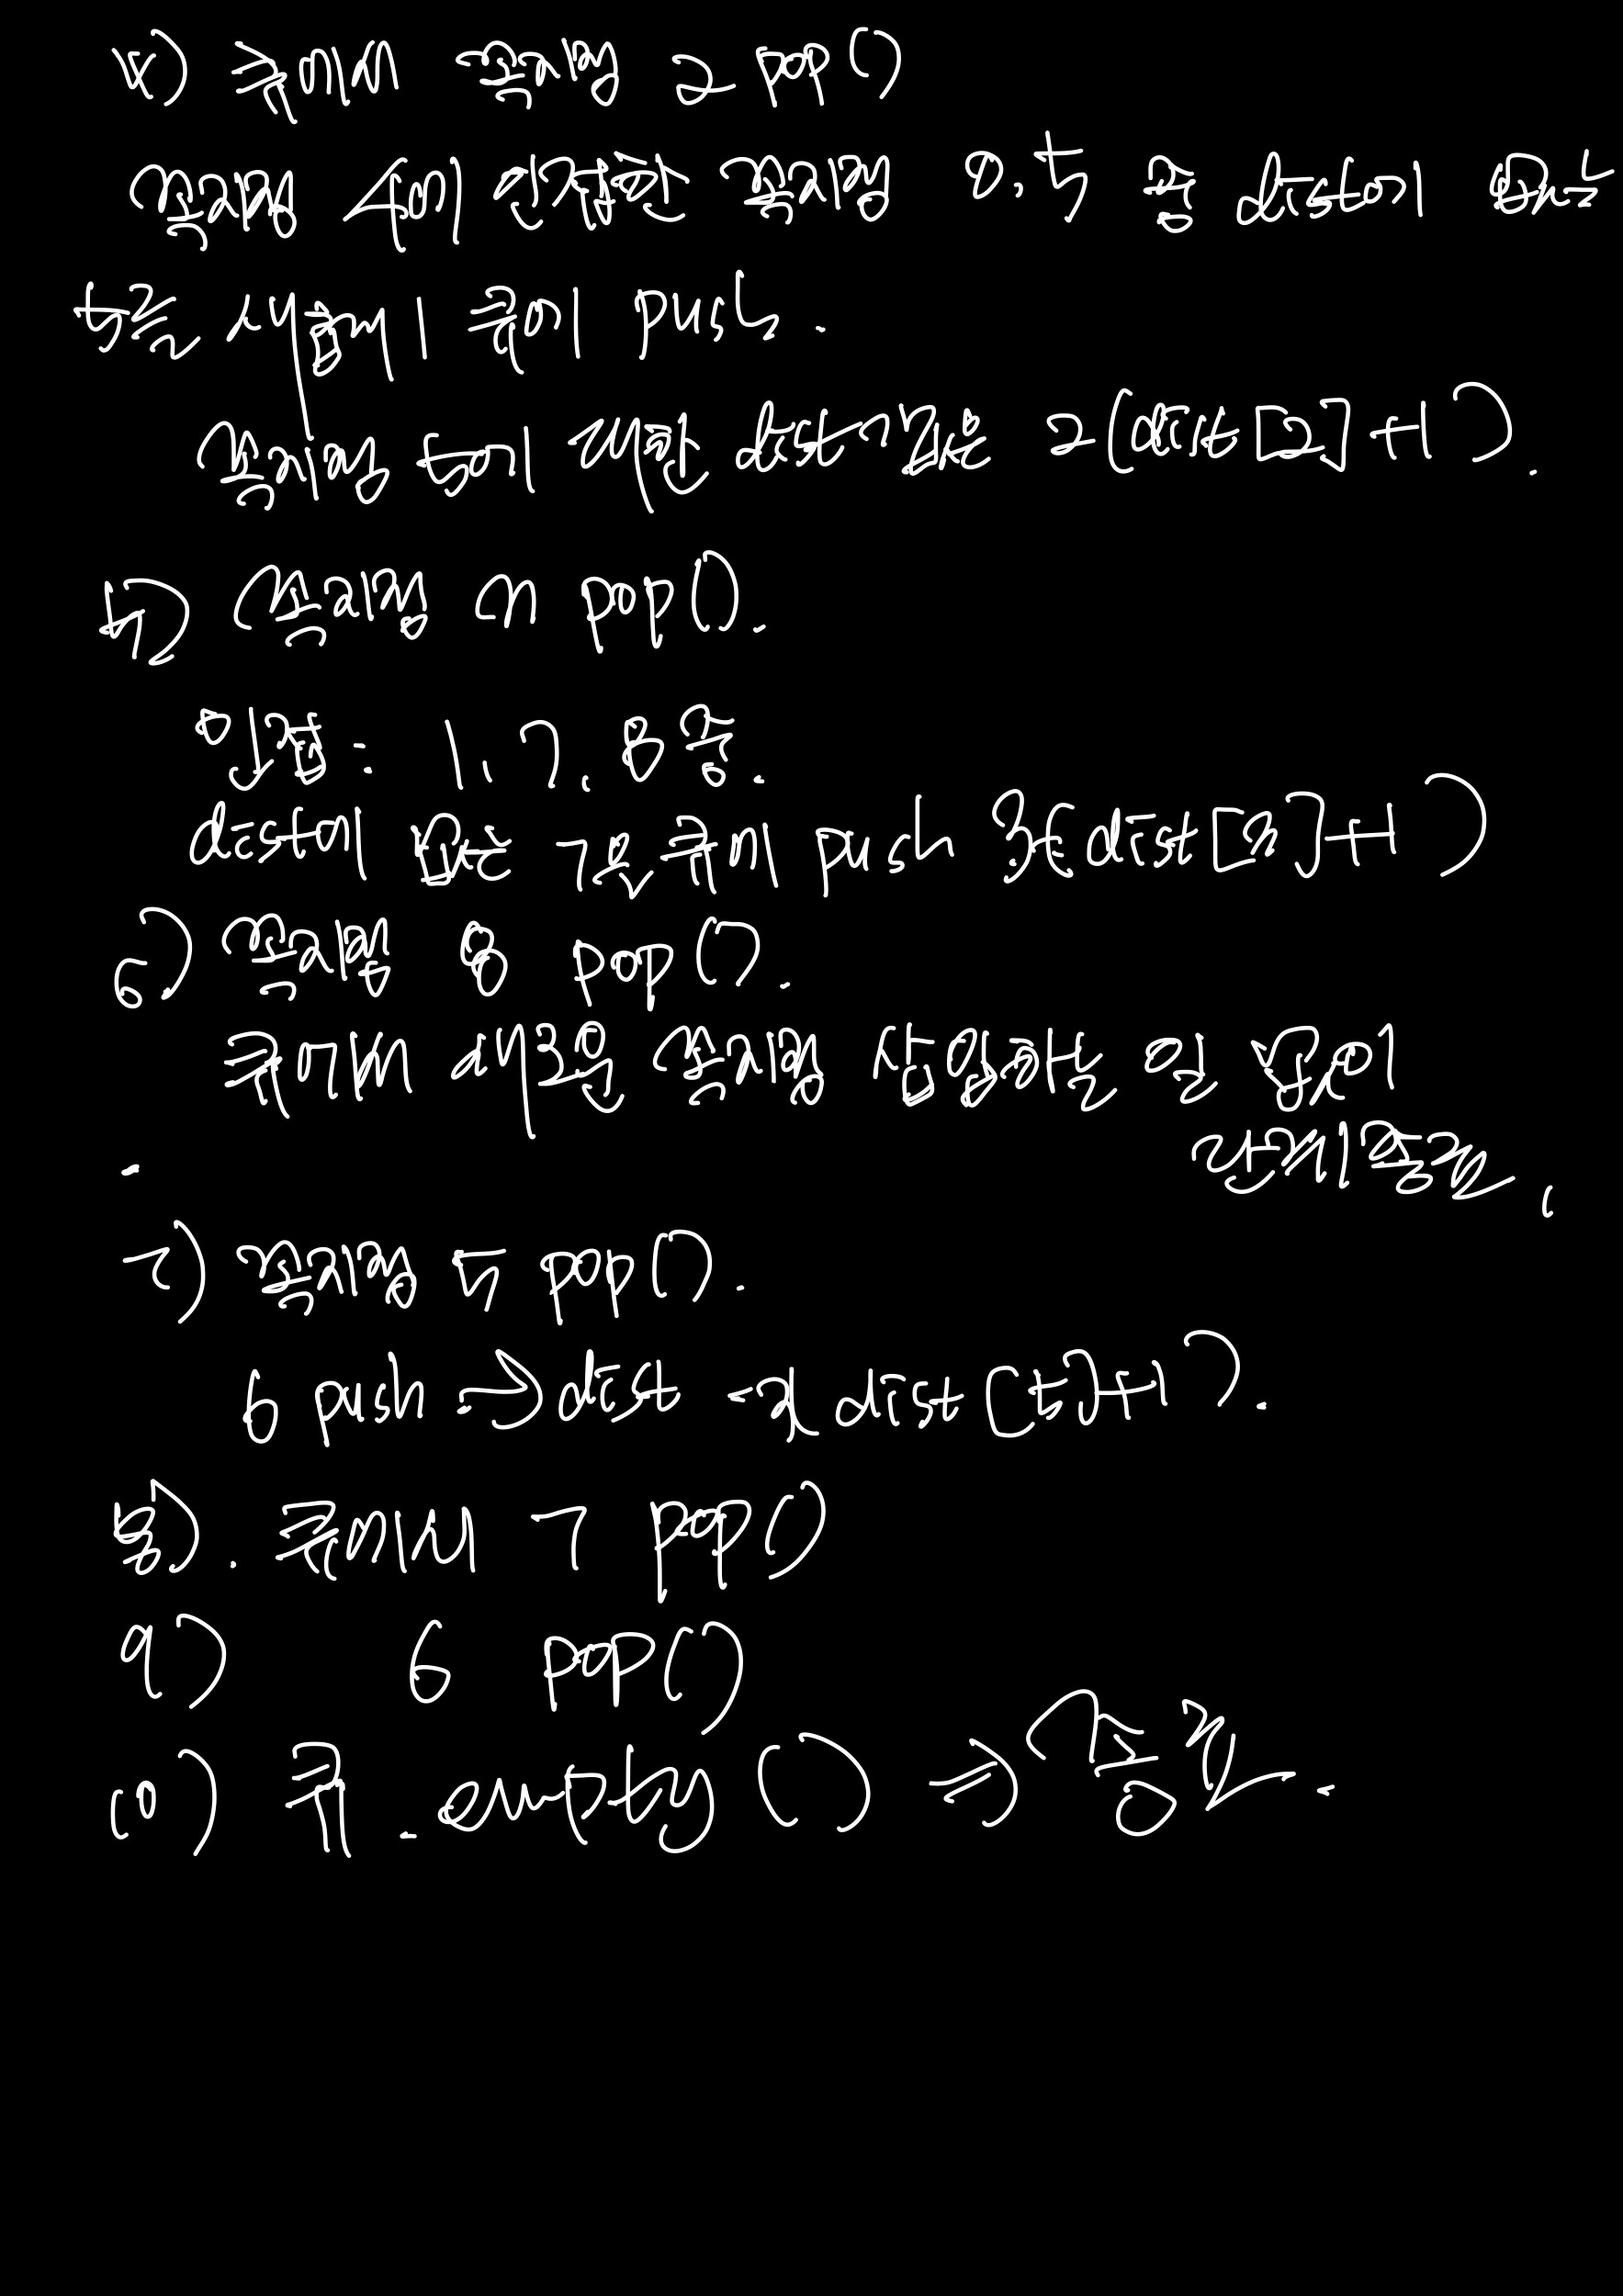 4) 큐에서 꼭지점 2 pop()
꼭지점 4에 인접한 꼭지점 0.5 중 dist이 없는
5를 선택해 큐에 push.
꼭지점 5에 대한 dist값은 2(dist[2]+1).
5) 꼭지점 3 pop().
인접: 1, 7, 8중.
dist이 없는 7은 큐에 push 3(dist[3]+1)
6) 꼭지점 8 pop().
큐에서 새로운 꼭지점 삽입하는 일 없이
단계종료.
7) 꼭지점 5 pop().
6 push → dist dist[5]+1).
8). 큐에서 7 pop()
9) 6 pop()
10) 큐.empty() ⇒ 종료.